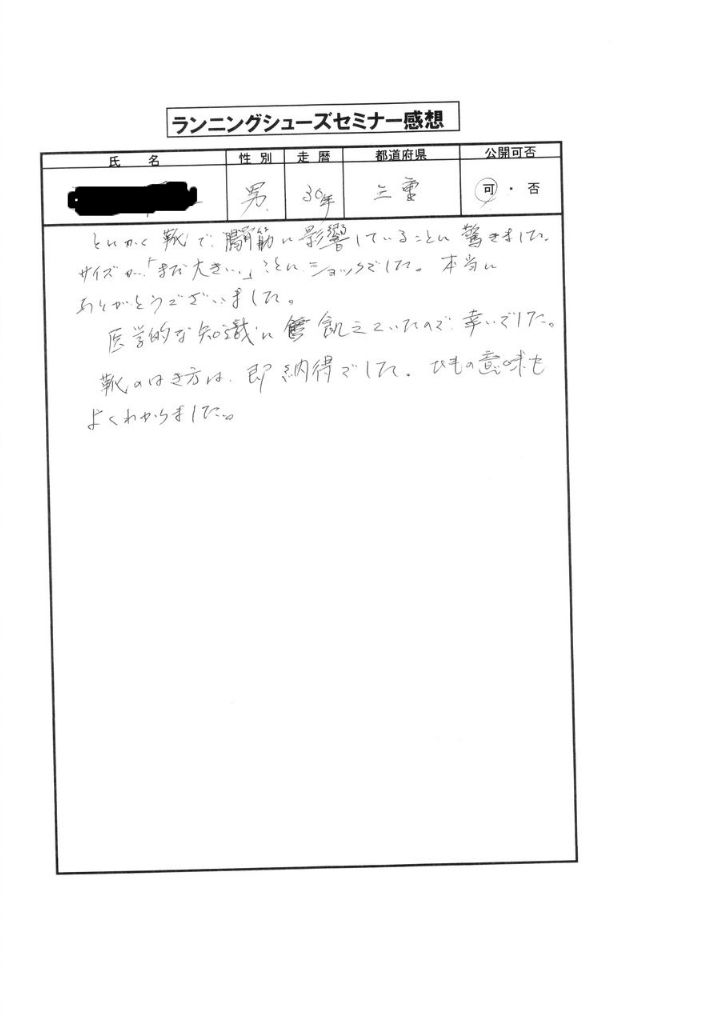 ランニングシューズセミナー感想
氏名 性別 走暦 都道府県 公開可否
男 30年 三重 可・否
とにかく靴で筋に影響していることに驚きました。
サイズが「まだ大きい…」ことにショックでした。本当に
ありがとうございました。
医学的な知識に飢えていたので幸いでした。
靴のはき方は、即納得でした。ひもの意味も
よくわかりました。